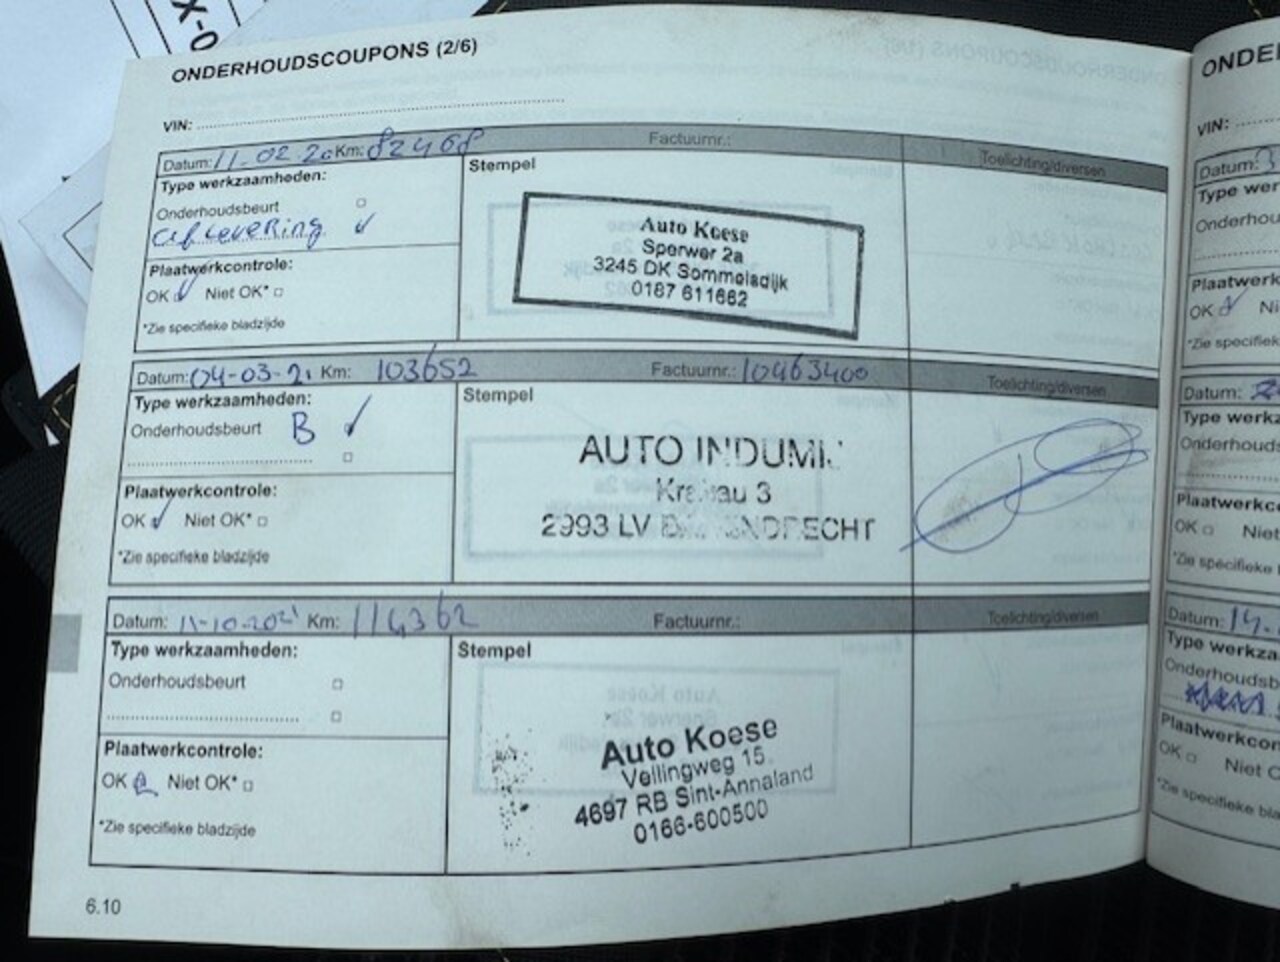 X-0
ONDERHOUDSCOUPONS (2/6)
VIN:
Datum: 11-02-20 Km: 82468 Factuurnr.: Toelichting/diversen
Type werkzaamheden:
Stempel
Onderhoudsbeurt
aflevering
Plaatwerkcontrole:
OK Niet OK*
*Zie specifieke bladzijde
Auto Koese
Sperwer 2a
3245 DK Sommelsdijk
0187 611662
Datum: 04-03-21 Km: 103652 Factuurnr.: 10463400 Toelichting/diversen
Type werkzaamheden:
Stempel
Onderhoudsbeurt B
Plaatwerkcontrole:
OK Niet OK*
*Zie specifieke bladzijde
AUTO INDUMI
3
2993 LV
Datum: 11-10-2021 Km: 114362 Factuurnr.: Toelichting/diversen
Type werkzaamheden:
Stempel
Onderhoudsbeurt
Plaatwerkcontrole:
OK Niet OK*
*Zie specifieke bladzijde
Auto Koese
Veilingweg 15
4697 RB Sint-Annaland
0166-600500
6.10
ONDE
VIN:
Datum: 3
Type wer
Onderhou
Plaatwerk
OK Ni
*Zie specifiek
Datum:
Type werkz
Onderhouds
Plaatwerkc
OK Niet
*Zie specifieke
Datum: 14.
Type werkza
Onderhoudsb
Plaatwerkcon
OK Niet O
*Zie specifieke b